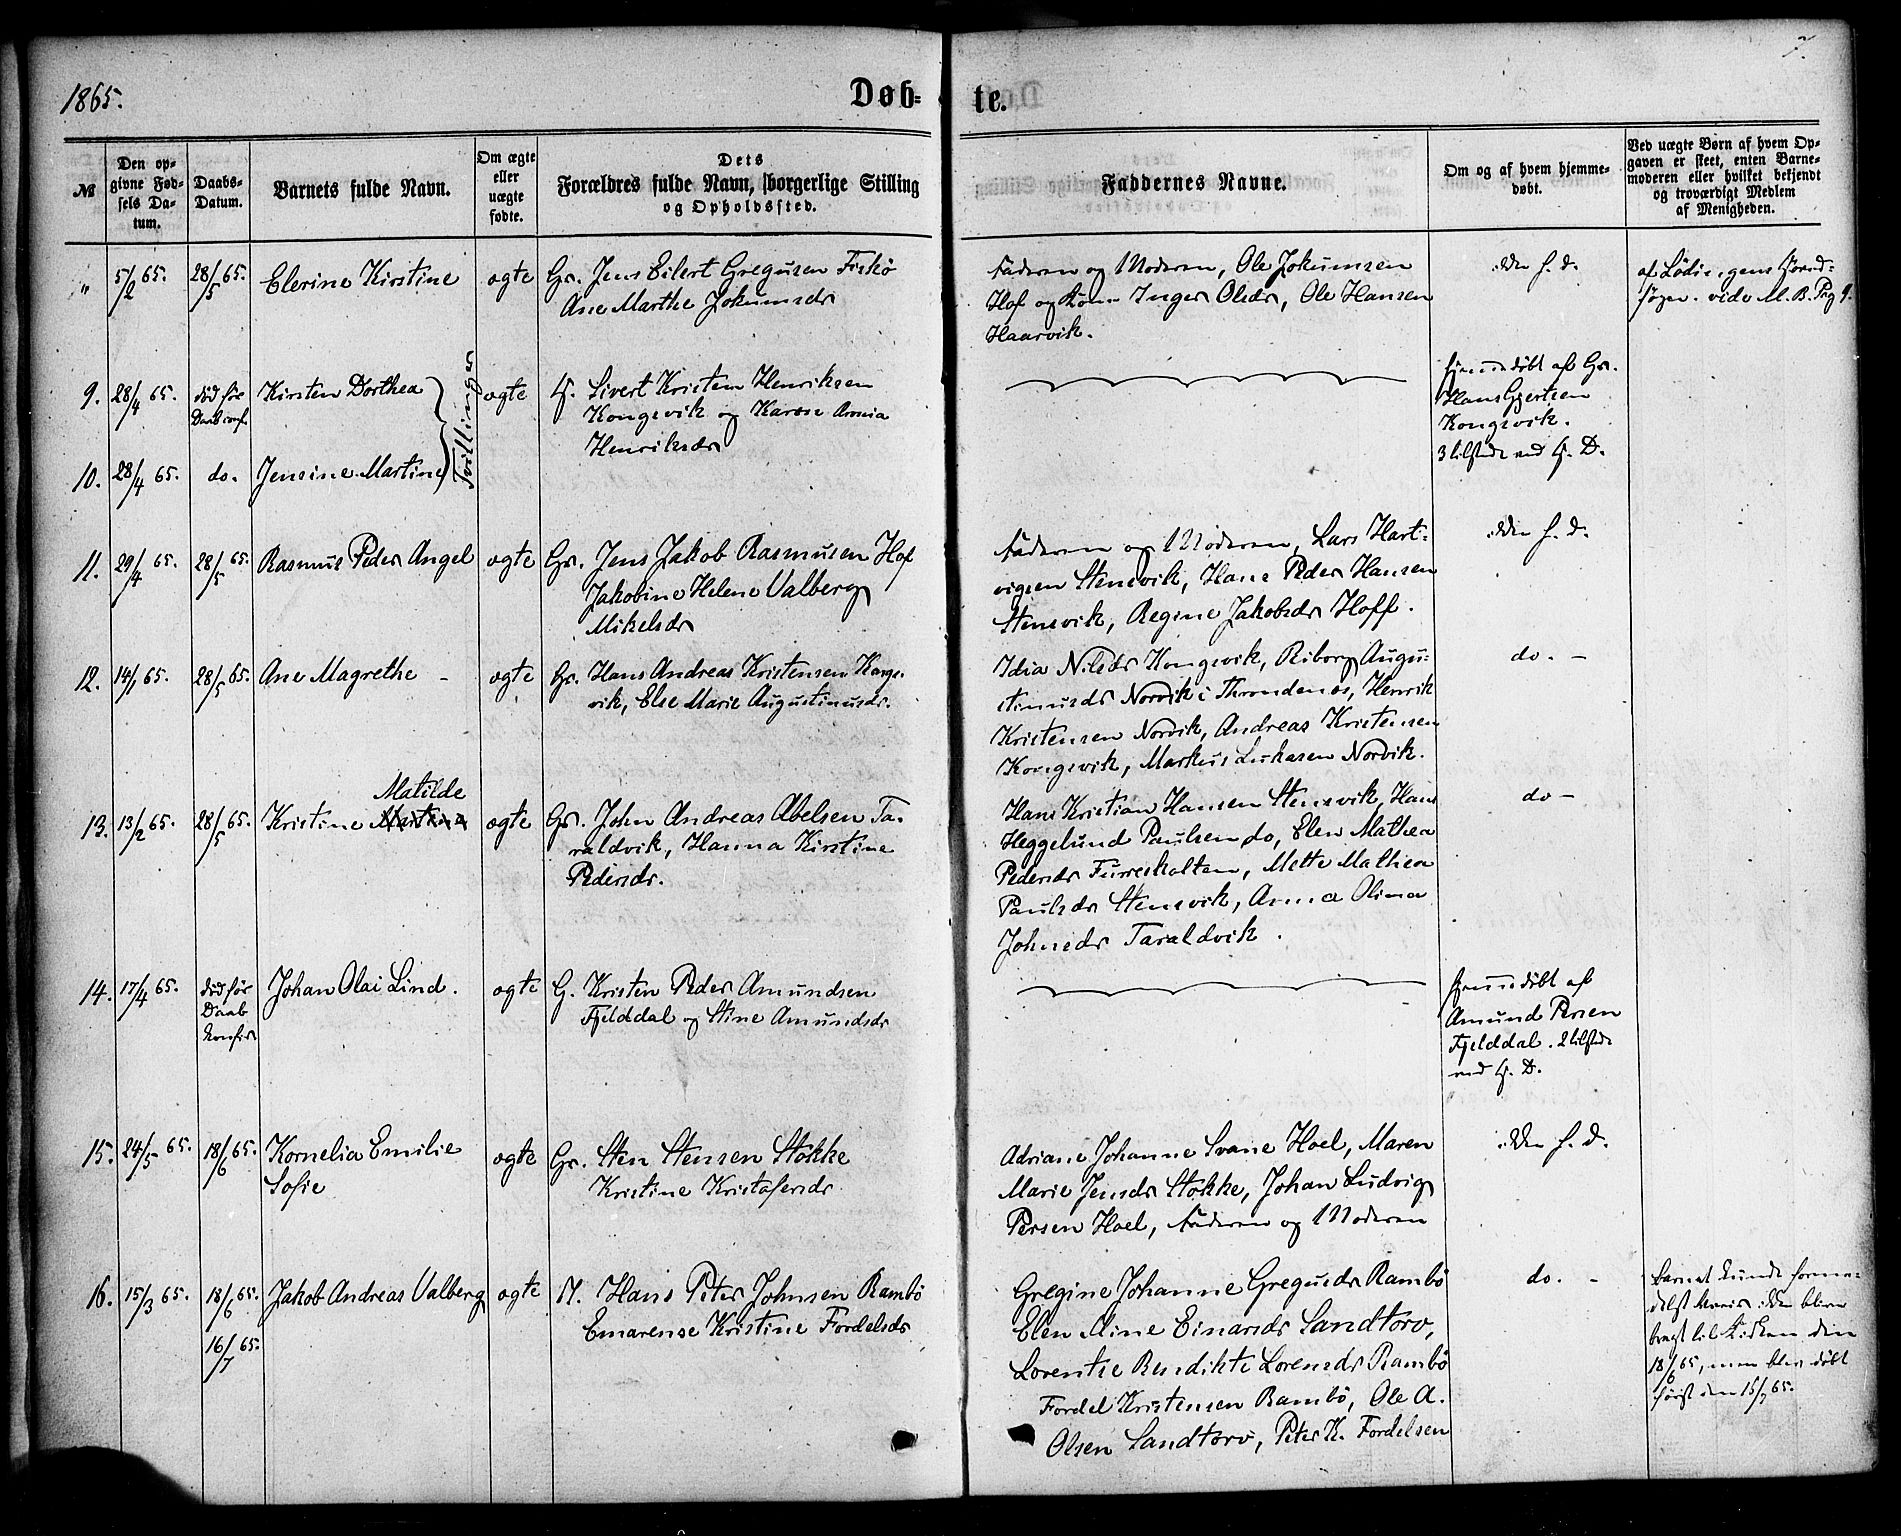 1865.
Døb-
te.
7.
№
Den op-
givne Fød-
sels Da-
tum.
Daabs-
Datum.
Barnets fulde Navn.
Om ægte
eller
uægte
fødte.
Dets
Forældres fulde Navn, borgerlige Stilling
og Opholdssted.
Faddernes Navne.
Om og af hvem hjemme-
døbt.
Ved uægte Børn af hvem Op-
gaven er skeet, enten Barne-
moderen eller hvilket bekjendt
og troværdigt Medlem
af Menigheden.
" 5/2 65. 28/5 65. Elerine Kirstine ægte Gr. Jens Eilert Gregusen Fiskø
Ane Marthe Jokumsdr
Faderen og Moderen, Ole Jokumsen
Hof og Inger Olsdr, Ole Hansen
Haarvik.
ikke h. d.
vide M. B. Pag 9.
9. 28/4 65. død før
Daab conf.
Kirsten Dorthea
Tvillinger
ægte
G. Sivert Kristen Henriksen
Kongsvik og Karen Anna
Henriksdr
hjemmedøbt af Gr.
Hans Gjertsen
Kongsvik.
3 tilstede ved H. D.
10. 28/4 65. do. Jensine Martine
11. 29/4 65. 28/5 65. Rasmus Peder Angel ægte Gr. Jens Jakob Rasmusen Hof
Jakobine Helene Valberg
Mikelsdr
Faderen og Moderen, Lars Hart-
vigsen Stensvik, Hans Peder Hansen
Stensvik, Regine Jakobsdr Hoff.
ikke h. d.
12. 14/1 65. 28/5 65. Ane Magrethe - ægte Gr. Hans Andreas Kristensen Kongs-
vik, Else Marie Augustinusdr.
Idia Nilsdr Kongsvik, Riborg Augu-
stinusdr Norvik i Throndenæs, Henrik
Kristensen Norvik, Andreas Kristensen
Kongsvik, Markus Lukasen Norvik.
do. -
13. 13/2 65. 28/5 65. Kristine Martina
Matilde
ægte Gr. John Andreas Abelsen Ta-
raldvik, Hanna Kirstine
Pedersdr.
Hans Kristian Hansen Stensvik, Hans
Heggelund Paulsen do, Elen Mathea
Pedersdr Furreskolten, Mette Mathea
Paulsdr Stensvik, Anna Olina
Johnsdr Taraldvik.
do -
14. 17/4 65. død før
Daab
konfir
Johan Olai Lind. ægte G. Kristen Peder Amundsen
Fjelddal og Stine Amundsdr
hjemmedøbt af
Amund Persen
Fjelddal. 2 tilstede
ved H. D.
15. 24/5 65. 18/6 65. Kornelia Emilie
Sofie
ægte Gr. Sten Stensen Stokke
Kristine Kristofersdr
Adriane Johanne Svane Hoel, Maren
Marie Jensdr Stokke, Johan Ludvig
Persen Hoel, Faderen og Moderen
ikke h. d.
16. 15/3 65. 18/6 65.
16/7 65.
Jakob Andreas Valberg ægte Hans Peter Johnsen Rambø
Emarense Kristine Fordelsdr
Gregine Johanne Gregusdr Rambø
Elen Mine Einarsdr Sandtorv,
Lorentse Bendikte Lorensdr Rambø
Fordel Kristensen Rambø, Ole A.
Olsen Sandtorv, Peter K. Fordelsen
do. -
Barnet kunde forme-
delst ikke blive
bragt til Kirken den
18/6 65, men blev døbt
først den 15/7 65.